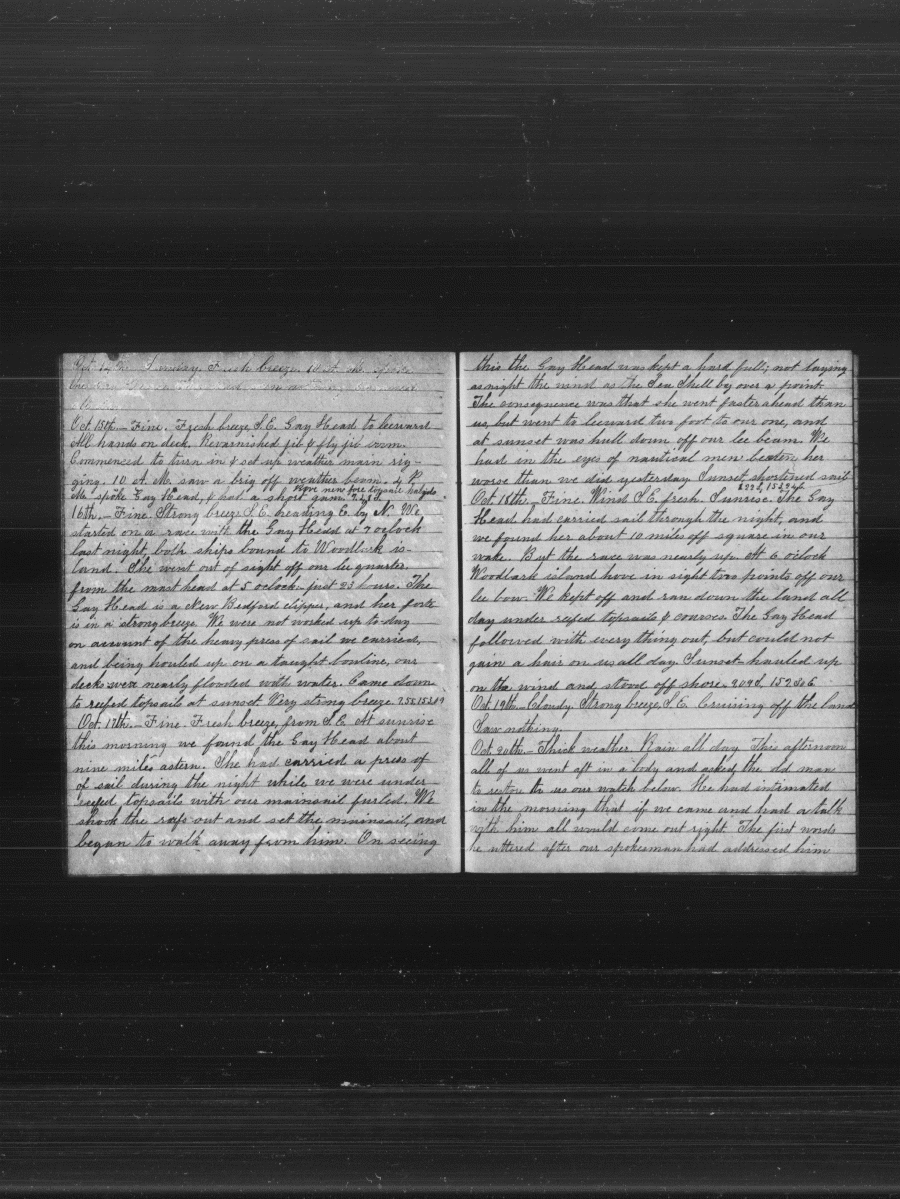 Oct. 14th Sunday. Fresh breeze. 10 A. M. spoke
Oct. 15th.— Fine. Fresh breeze S.E. Gay Head to leeward
All hands on deck. Revarnished jib & fly jib boom.
Commenced to turn in & set up weather main rig-
ging. 10 A. M. saw a brig off weather beam. 4 P.
M. spoke Gay Head, & had a short gam.
Hove new fore topsail halyds
16th.— Fine. Strong breeze S.E. heading E. by N. We
started on a race with the Gay Head at 7 oclock
last night, both ships bound to Woodlark is-
land. She went out of sight off our lee quarter
from the mast head at 5 oclock—just 23 hours. The
Gay Head is a New Bedford clipper, and her forte
is in a strong breeze. We were not worked up to day
on account of the heavy press of sail we carried,
and being hauled up on a taught bowline, our
decks were nearly flooded with water. Came down
to reefed topsails at sunset. Very strong breeze.
Oct. 17th.— Fine. Fresh breeze, from S.E. At sunrise
this morning we found the Gay Head about
nine miles astern. She had carried a press of
of sail during the night while we were under
reefed topsails with our mainsail furled. We
shook the reefs out and set the mainsail, and
began to walk away from him. On seeing
this the Gay Head was kept a hard full; not laying
as nigh the wind as the Sea Shell by over a point.
The consequence was that she went faster ahead than
us, but went to leeward two foot to our one, and
at sunset was hull down off our lee beam. We
had in the eyes of nautical men beaten her
worse than we did yesterday. Sunset shortened sail
Oct 18th.— Fine. Wind S.E. fresh. Sunrise. The Gay
Head had carried sail through the night, and
we found her about 10 miles off square in our
wake. But the race was nearly up. At 6 oclock
Woodlark island hove in sight two points off our
lee bow. We kept off and ran down the land all
day under reefed topsails & courses. The Gay Head
followed with every thing out, but could not
gain a hair on us all day. Sunset hauled up
on the wind and stood off shore. 909 S. 152 30 E
Oct. 19th.— Cloudy. Strong breeze, S.E. Cruising off the land
Saw nothing.
Oct. 20th.— Thick weather. Rain all day. This afternoon
all of us went aft in a body and asked the old man
to restore to us our watch below. He had intimated
in the morning that if we came and had a talk
with him all would come out right. The first words
he uttered after our spokesman had addressed him